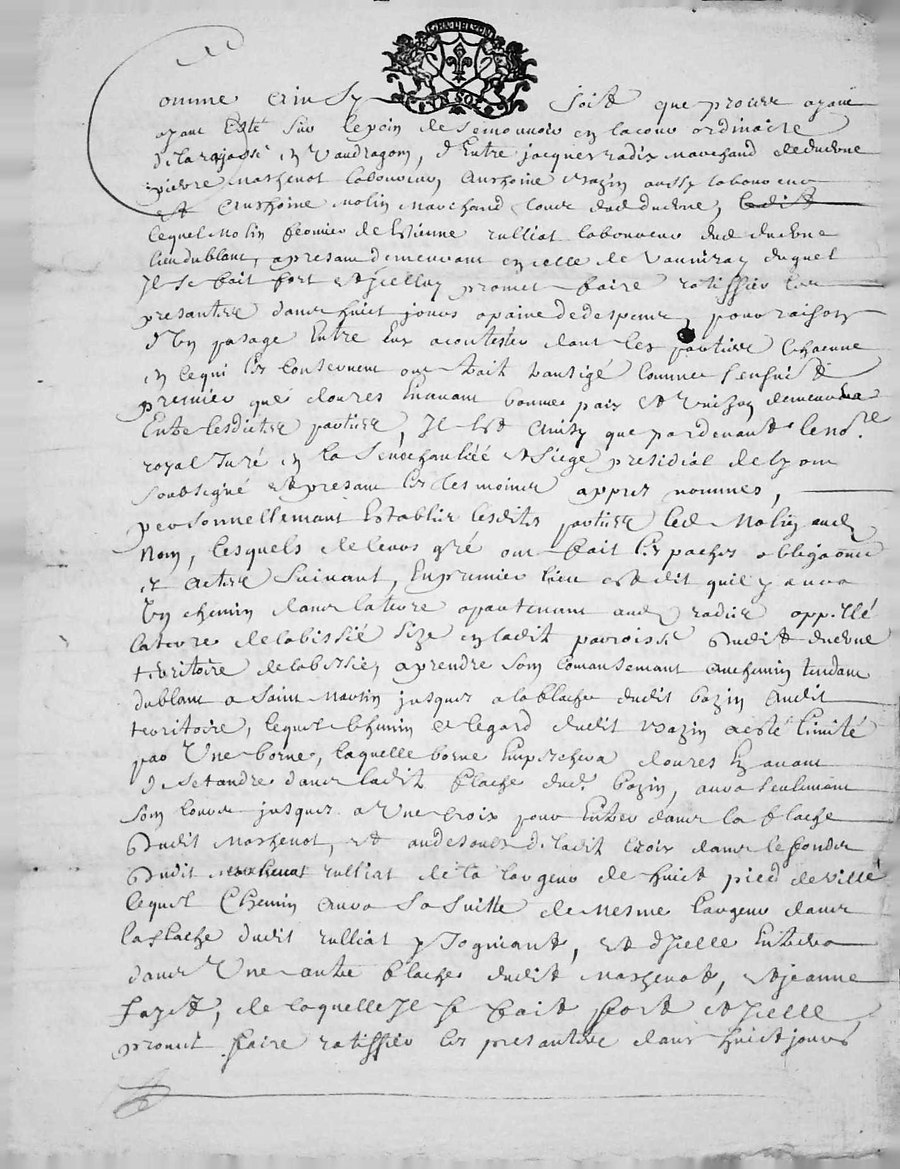 GNA DE LYON
UN SOL
Comme Ainsy soit que proces ayant
ayant Esté sur le poin de se mouvoir en la cour ordinaire
de larajassé en Vaudragon, d'Entre jacques radix Marchand de duerne
pierre Marhenot laboureur, Anthoine Bazin aussy laboureur
Et Anthoine Molin Marchand dud duerne,
lequel Molin fermier de Estienne rulliat laboureur dud duerne
lieu dublanc, apresant demeurant en celle de duquel
Il se fait fort et d'icelluy promet faire ratiffier les
presantes dans huict jours a paine de despens, pour raison
d'Un pasage Entre Eux acontester dont les parties Chacune
en ce qui les concernent ont fait transigé Comme s'ensuit
premier que d'ores Enavant bonne paix et Union demeurera
Entre lesdittes parties, Il Est Ainsy que pardevant le no.re
royal Juré en la Senechaussée et Siege presidial de lyon
soubsigné et presant les tesmoins appres nommes,
personnellemant Establis lesdits parties led Molin aud
Nom, lesquels de leurs gré ont fait les paches obligaons
et Actes suivant, En premier lieu est dit quil y aura
Un chemin dans la terre apartenant aud radix appellé
la terre de labissié size en ladit parroisse dudit duerne
territoire de labissie, a prendre som comansemant au chemin tendant
dublanc a Saint Martin jusques a la blache dudit bazin Audit
territoire, lequel Chemin a legard dudit Bazin a esté limité
par Une borne, laquelle borne Empechera d'ores Enavant
de setandre dans ladit blache dud. bazin, aura seulemant
som cours jusques a Une croix pour Entrer dans la blache
dudit Marhenot, et audesoubs de ladit Croix dans le fonds
dudit rulliat de la largeur de huict pied de ville
lequel Chemin aura Sa Suitte de Mesme largeur dans
la blache dudit rulliat y Joignant, et d'Icelle Entrera
dans Une autre blache dudit Marhenot, et jeanne
fayet, de laquelle Il se fait fort et d'Icelle
promet faire ratiffier les presantes dans huict jours